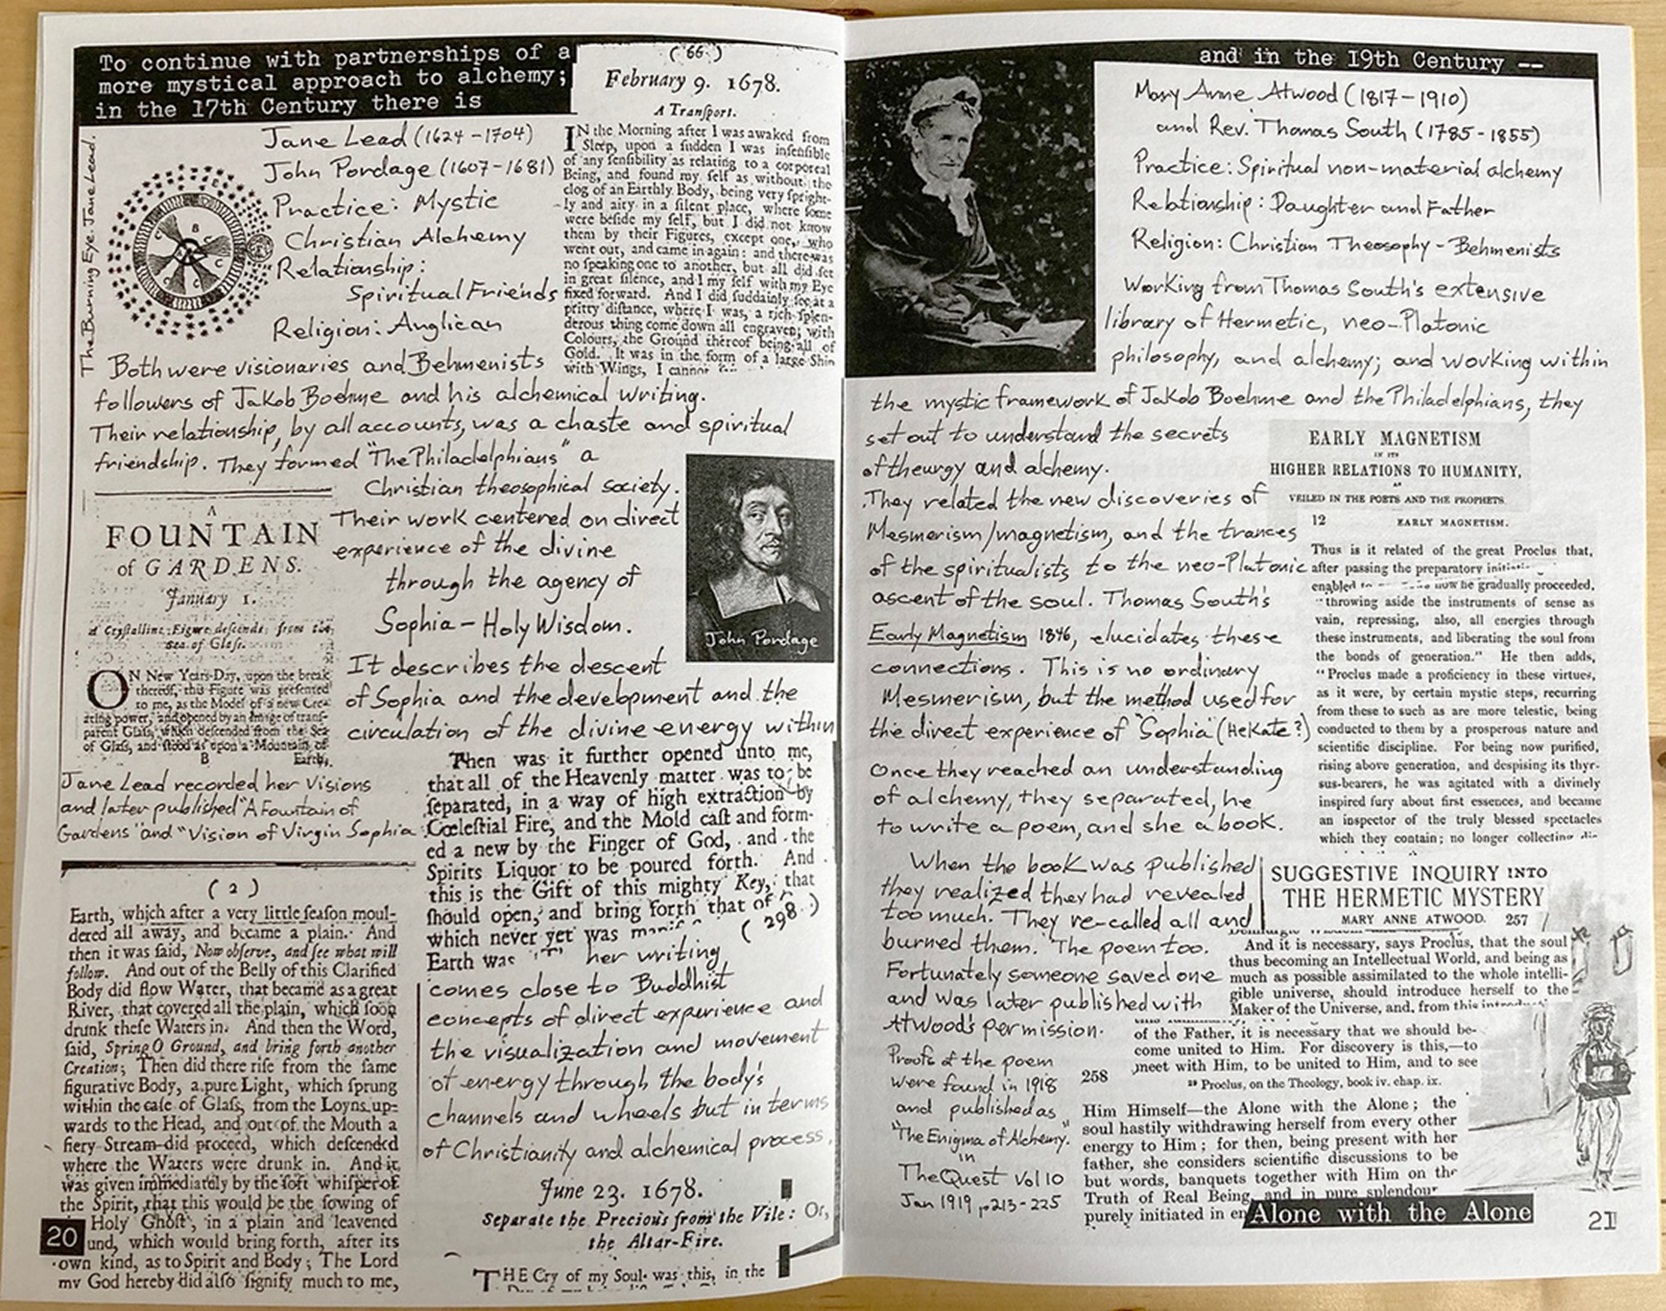 To continue with partnerships of a
more mystical approach to alchemy;
in the 17th Century there is
The Burning Eye. Jane Lead.
Jane Lead (1624-1704)
John Pordage (1607-1681)
Practice: Mystic
Christian Alchemy
Relationship:
Spiritual Friends
Religion: Anglican
(66)
February 9. 1678.
A Transport.
IN the Morning after I was awaked from
Sleep, upon a sudden I was insensible
of any sensibility as relating to a corporeal
Being, and found my self as without the
clog of an Earthly Body, being very spright-
ly and airy in a silent place, where some
were beside my self, but I did not know
them by their Figures, except one, who
went out, and came in again: and there was
no speaking one to another, but all did set
in great silence, and I my self with my Eye
fixed forward. And I did suddainly see at a
pritty distance, where I was, a rich splen-
derous thing come down all engraven with
Colours, the Ground thereof being all of
Gold. It was in the form of a large Ship
with Wings, I cannot
Both were visionaries and Behmenists
followers of Jakob Boehme and his alchemical writing.
Their relationship, by all accounts, was a chaste and spiritual
friendship. They formed "The Philadelphians" a
Christian theosophical society.
Their work centered on direct
experience of the divine
through the agency of
Sophia - Holy Wisdom.
It describes the descent
of Sophia and the development and the
circulation of the divine energy within
John Pordage
A
FOUNTAIN
of GARDENS.
January 1.
A Crystalline Figure descends from the
Sea of Glass.
ON New Years-Day, upon the break
thereof, this Figure was presented
to me, as the Model of a new Crea-
ating power, and opened by an Image of trans-
parent Glass, which descended from the Sea
of Glass, and stood as upon a Mountain of
B Earth,
Jane Lead recorded her Visions
and later published "A Fountain of
Gardens" and "Vision of Virgin Sophia
(2)
Earth, which after a very little season moul-
dered all away, and became a plain. And
then it was said, Now observe, and see what will
follow. And out of the Belly of this Clarified
Body did flow Water, that became as a great
River, that covered all the plain, which soon
drunk these Waters in. And then the Word,
said, Spring O Ground, and bring forth another
Creation; Then did there rise from the same
figurative Body, a pure Light, which sprung
within the case of Glass, from the Loyns up-
wards to the Head, and out of the Mouth a
fiery Stream did proceed, which descended
where the Waters were drunk in. And it
was given immediately by the soft whisper of
the Spirit, that this would be the sowing of
Holy Ghost, in a plain and leavened
und, which would bring forth, after its
own kind, as to Spirit and Body; The Lord
my God hereby did also signify much to me,
20
Then was it further opened unto me,
that all of the Heavenly matter was to be
separated, in a way of high extraction by
Cœlestial Fire, and the Mold cast and form-
ed a new by the Finger of God, and the
Spirits Liquor to be poured forth. And
this is the Gift of this mighty Key, that
should open, and bring forth that of
which never yet was
Earth was
(298)
her writing
comes close to Buddhist
concepts of direct experience and
the visualization and movement
of energy through the body's
channels and wheels but in terms
of Christianity and alchemical process.
June 23. 1678.
Separate the Precious from the Vile: Or,
the Altar-Fire.
THE Cry of my Soul was this, in the
and in the 19th Century --
Mary Anne Atwood (1817-1910)
and Rev. Thomas South (1785-1855)
Practice: Spiritual non-material alchemy
Relationship: Daughter and Father
Religion: Christian Theosophy - Behmenists
Working from Thomas South's extensive
library of Hermetic, neo-Platonic
philosophy, and alchemy; and working within
the mystic framework of Jakob Boehme and the Philadelphians, they
set out to understand the secrets
of theurgy and alchemy.
They related the new discoveries of
Mesmerism/magnetism, and the trances
of the spiritualists to the neo-Platonic
ascent of the soul. Thomas South's
Early Magnetism 1846, elucidates these
connections. This is no ordinary
Mesmerism, but the method used for
the direct experience of "Sophia" (Hekate?)
Once they reached an understanding
of alchemy, they separated, he
to write a poem, and she a book.
EARLY MAGNETISM
IN ITS
HIGHER RELATIONS TO HUMANITY,
AS
VEILED IN THE POETS AND THE PROPHETS.
12 EARLY MAGNETISM.
Thus is it related of the great Proclus that,
after passing the preparatory
enabled to now he gradually proceeded,
"throwing aside the instruments of sense as
vain, repressing, also, all energies through
these instruments, and liberating the soul from
the bonds of generation." He then adds,
"Proclus made a proficiency in these virtues,
as it were, by certain mystic steps, recurring
from these to such as are more telestic, being
conducted to them by a prosperous nature and
scientific discipline. For being now purified,
rising above generation, and despising its thyr-
sus-bearers, he was agitated with a divinely
inspired fury about first essences, and became
an inspector of the truly blessed spectacles
which they contain; no longer collecting
When the book was published
they realized they had revealed
too much. They re-called all and
burned them. The poem too.
Fortunately someone saved one
and was later published with
Atwood's permission.
Proofs of the poem
were found in 1918
and published as
"The Enigma of Alchemy."
in
The Quest Vol 10
Jan 1919 p213-225
SUGGESTIVE INQUIRY INTO
THE HERMETIC MYSTERY
MARY ANNE ATWOOD. 257
And it is necessary, says Proclus, that the soul
thus becoming an Intellectual World, and being as
much as possible assimilated to the whole intelli-
gible universe, should introduce herself to the
Maker of the Universe, and, from this
of the Father, it is necessary that we should be-
come united to Him. For discovery is this,—to
meet with Him, to be united to Him, and to see
258 Proclus, on the Theology, book iv. chap. ix.
Him Himself—the Alone with the Alone; the
soul hastily withdrawing herself from every other
energy to Him; for then, being present with her
father, she considers scientific discussions to be
but words, banquets together with Him on the
Truth of Real Being, and in pure splendour
purely initiated in
Alone with the Alone
21